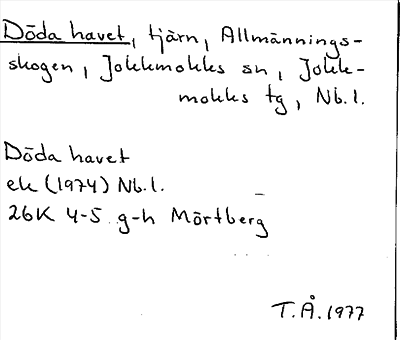 Döda havet, tjärn, Allmännings-
skogen, Jokkmokks sn, Jokk-
mokks tg, Nb.l.
Döda havet
ek (1974) Nb.l.
26K 4-5 g-h Mörtberg
T.Å. 1977